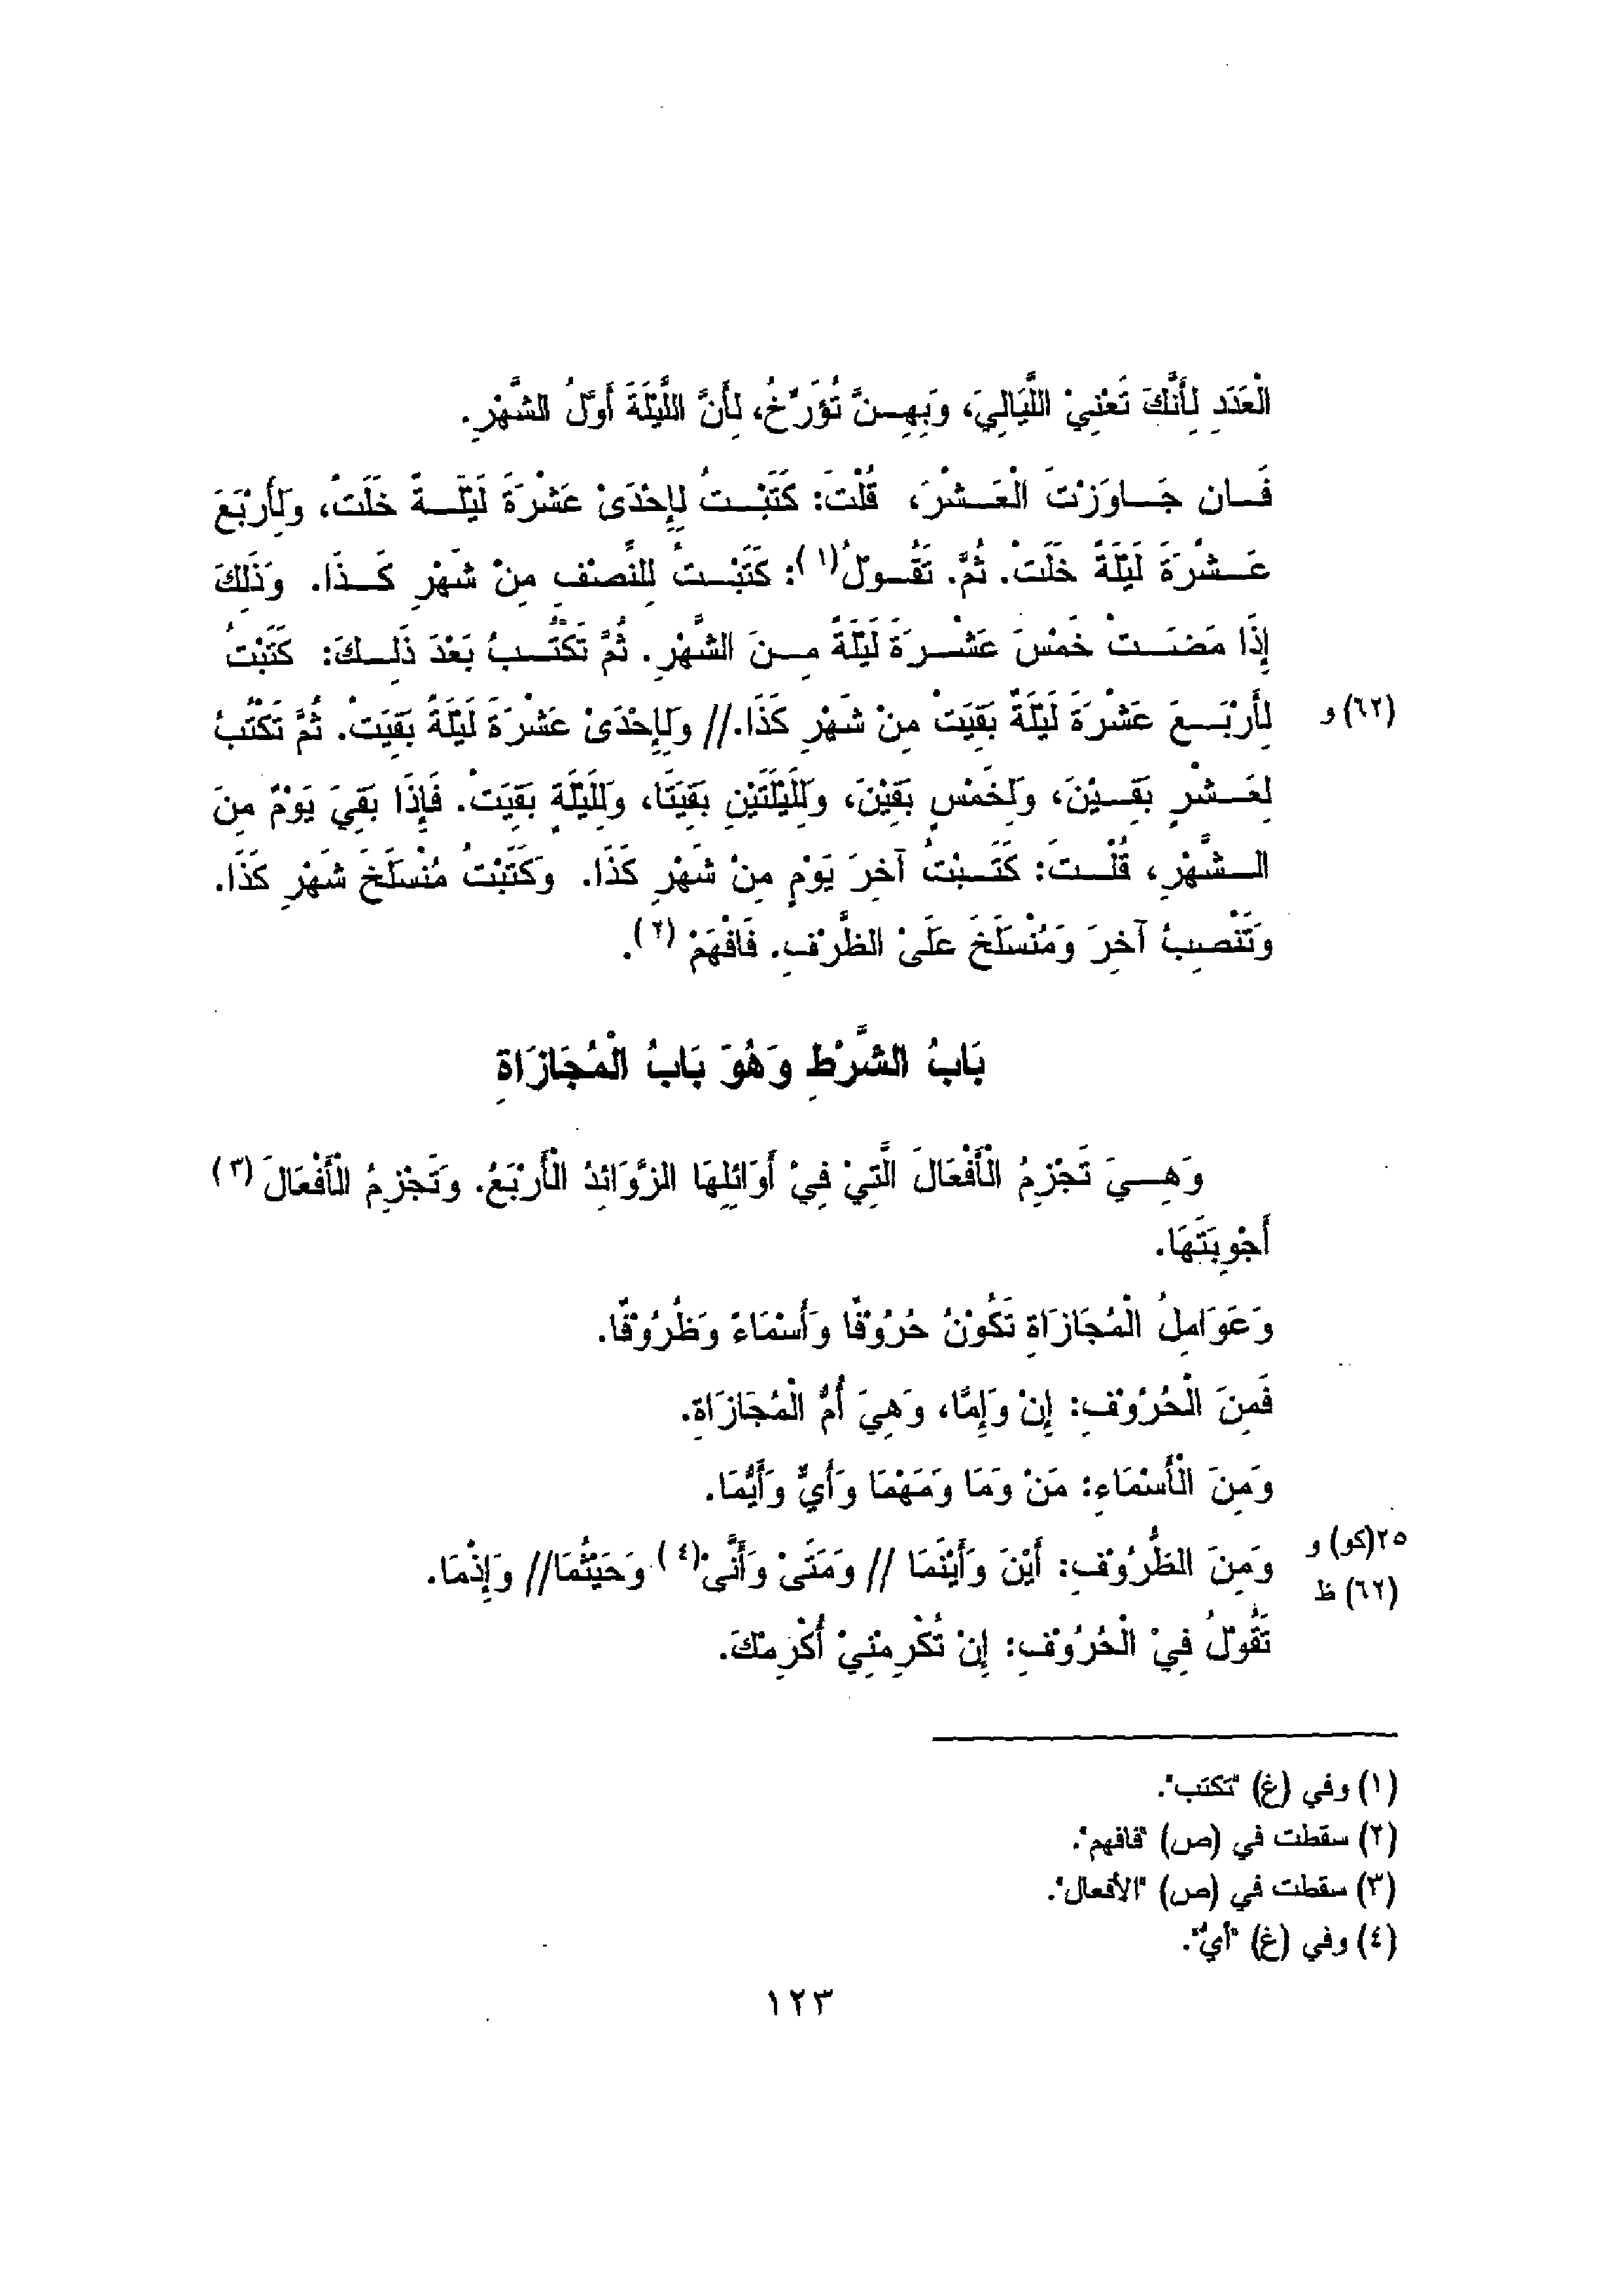 الْعَدَدِ لِأَنَّكَ تَعْنِيْ اللَّيَالِيَ، وَبِهِنَّ تُؤَرِّخُ، لِأَنَّ اللَّيْلَةَ أَوَّلُ الشَّهْرِ.
فَإن جَاوَزْتَ الْعَشْرَ، قُلْتَ: كَتَبْتُ لِإِحْدَىْ عَشْرَةَ لَيْلَةً خَلَتْ، وَلِأَرْبَعَ
عَشْرَةَ لَيْلَةً خَلَتْ. ثُمَّ. تَقُولُ(١): كَتَبْتُ لِلنِّصْفِ مِنْ شَهْرِ كَذَا. وَذَلِكَ
إِذَا مَضَتْ خَمْسَ عَشْرَةَ لَيْلَةً مِنَ الشَّهْرِ. ثُمَّ تَكْتُبُ بَعْدَ ذَلِكَ: كَتَبْتُ
(٦٢) و لِأَرْبَعَ عَشْرَةَ لَيْلَةً بَقِيَتْ مِنْ شَهْرِ كَذَا.// وَلِإِحْدَىْ عَشْرَةَ لَيْلَةً بَقِيَتْ. ثُمَّ تَكْتُبُ
لِعَشْرٍ بَقِيْنَ، وَلِخَمْسٍ بَقِيْنَ، وَلِلَيْلَتَيْنِ بَقِيَتَا، وَلِلَيْلَةٍ بَقِيَتْ. فَإِذَا بَقِيَ يَوْمٌ مِنَ
الشَّهْرِ، قُلْتَ: كَتَبْتُ آخِرَ يَوْمٍ مِنْ شَهْرِ كَذَا. وَكَتَبْتُ مُنْسَلَخَ شَهْرِ كَذَا.
وَتَنْصِبُ آخِرَ وَمُنْسَلَخَ عَلَىْ الظَّرْفِ. فَافْهَمْ (٢).
بَابُ الشَّرْطِ وَهُوَ بَابُ الْمُجَازَاةِ
وَهِيَ تَجْزِمُ الْأَفْعَالَ الَّتِيْ فِيْ أَوَائِلِهَا الزَّوَائِدُ الْأَرْبَعُ. وَتَجْزِمُ الْأَفْعَالَ (٣)
أَجْوِبَتَهَا.
وَعَوَامِلُ الْمُجَازَاةِ تَكُوْنُ حُرُوْفًا وَأَسْمَاءً وَظُرُوْفًا.
فَمِنَ الْحُرُوْفِ: إِنْ وَإِمَّا، وَهِيَ أُمُّ الْمُجَازَاةِ.
وَمِنَ الْأَسْمَاءِ: مَنْ وَمَا وَمَهْمَا وَأَيٌّ وَأَيُّمَا.
٢٥(كو) و وَمِنَ الظُّرُوْفِ: أَيْنَ وَأَيْنَمَا // وَمَتَىْ وَأَنَّىْ(٤) وَحَيْثُمَا// وَإِذْمَا.
(٦٢) ظ
تَقُوْلُ فِيْ الْحُرُوْفِ: إِنْ تُكْرِمْنِيْ أُكْرِمْكَ.
(١) وفي (غ) "تكتب".
(٢) سقطت في (ص) "فافهم".
(٣) سقطت في (ص) "الأفعال".
(٤) وفي (غ) "أيُّ".
١٢٣